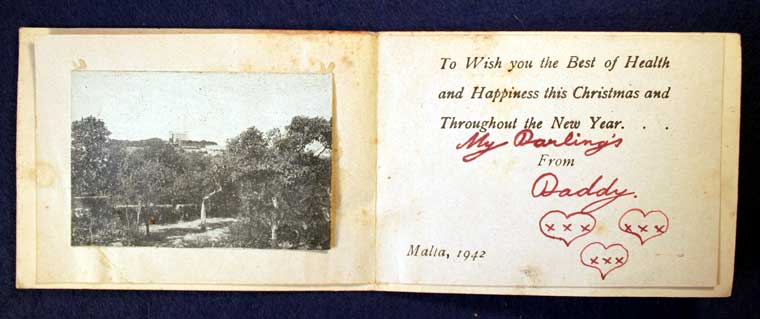 To Wish you the Best of Health
and Happiness this Christmas and
Throughout the New Year. . .
My Darling's
From
Daddy.
x x x
x x x
x x x
Malta, 1942